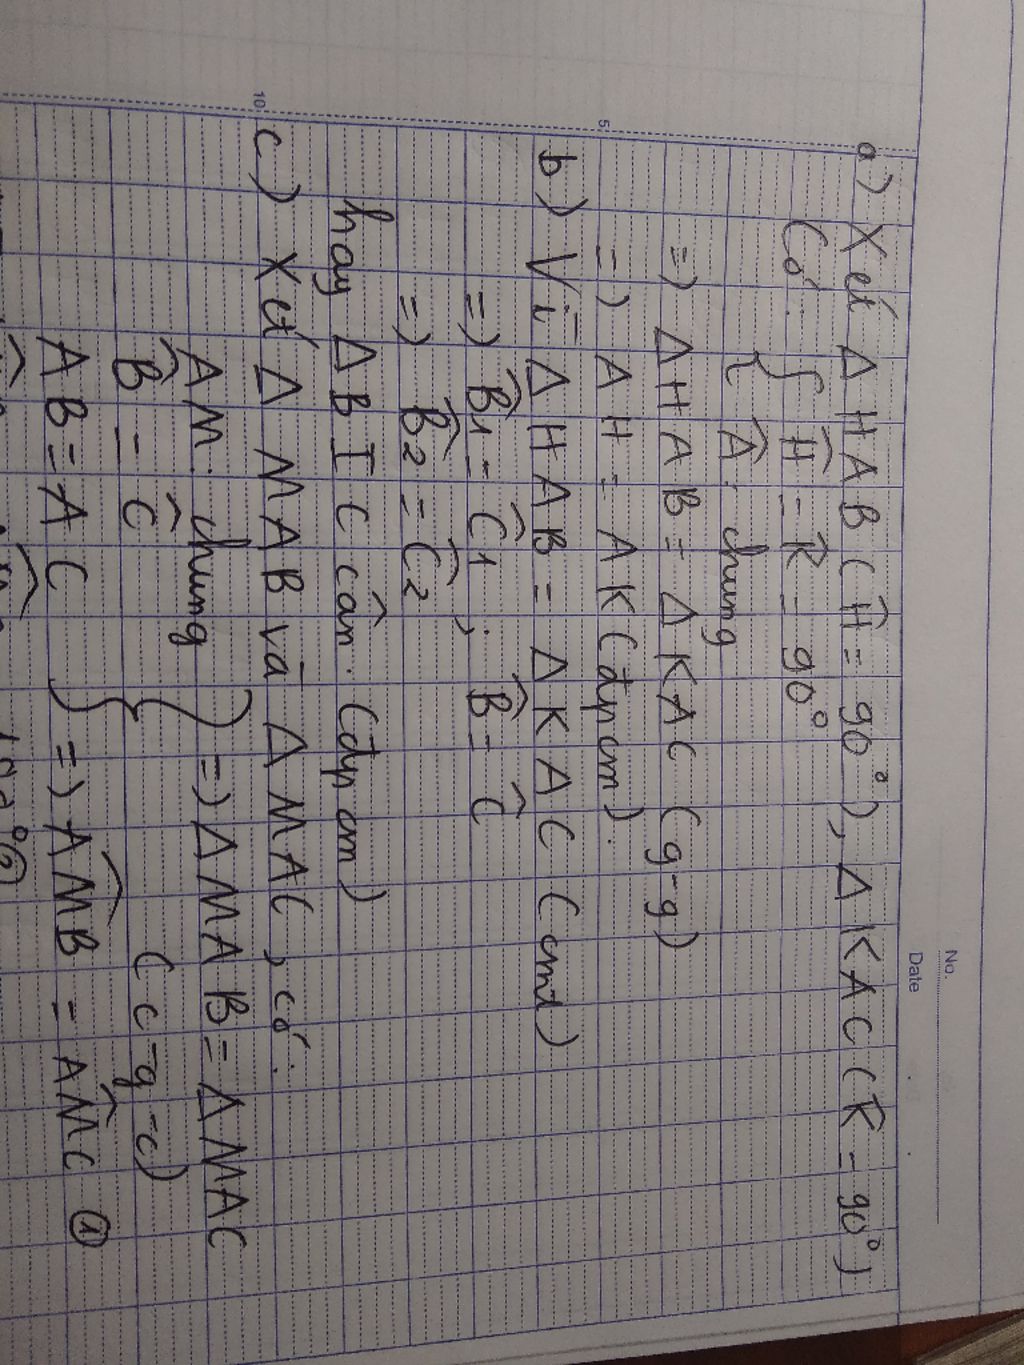 No.
Date
a) Xét Δ HAB (Ĥ = 90°), Δ KAC (K̂ = 90°)
Có: { Ĥ = K̂ = 90°
Â: chung
=) Δ HAB = Δ KAC (g-g)
=) AH = AK (đpcm).
5
b) Vì Δ HAB = Δ KAC (cmt)
=) B̂1 = Ĉ1 ; B̂ = Ĉ
=) B̂2 = Ĉ2
hay Δ BIC cân. (đpcm)
10
c) Xét Δ MAB và Δ MAC, có:
AM: chung } =) Δ MAB = Δ MAC
B̂ = Ĉ (c-g-c)
AB = AC } =) AM̂B = AM̂C ①